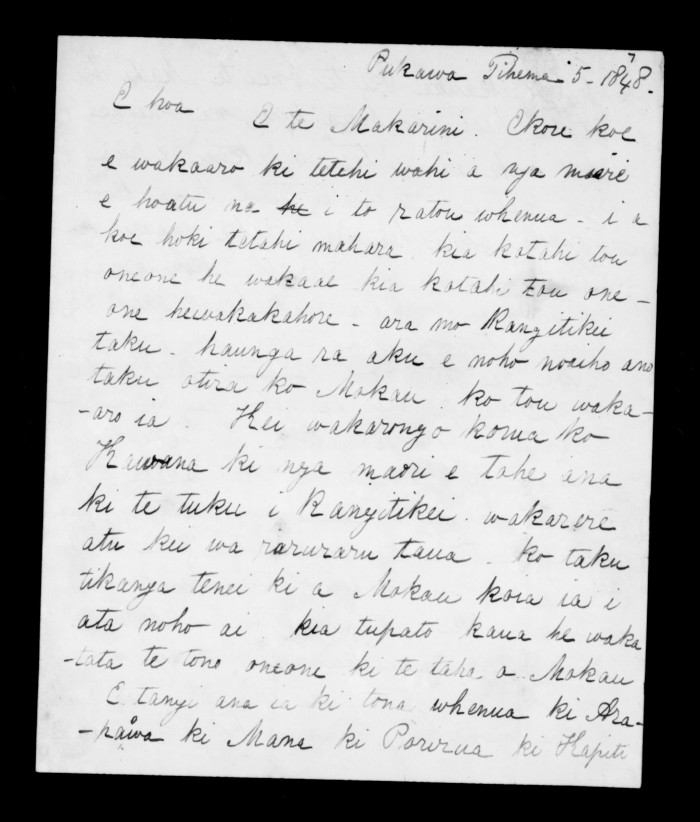 Pukawa Tihema 5 - 1848.
E hoa E te Makarini. Ekore koe
e wakaaro ki tetehi wahi a nga maori
e hoatu na i to ratou whenua - i a
koe hoki tetahi mahara. kia kotahi tou
oneone he wakaae kia kotahi tou one-
one hewakakahore - ara mo Rangitikei
taku - haunga ra aku e noho noaiho ano
taku otira ko Mokau. ko tou waka-
-aro ia. Kei wakarongo korua ko
Kawana ki nga maori e tohe ana
ki te tuku i Rangitikei. wakarere
atu kei wa raruraru taua. ko taku
tikanga tenei ki a Mokau koia ia i
ata noho ai. kia tupato kaua he waka
-tata te tono oneone ki te taha o Mokau
E tangi ana ia ki tona whenua ki Ara-
-pawa ki Mana ki Porirua ki Kapiti